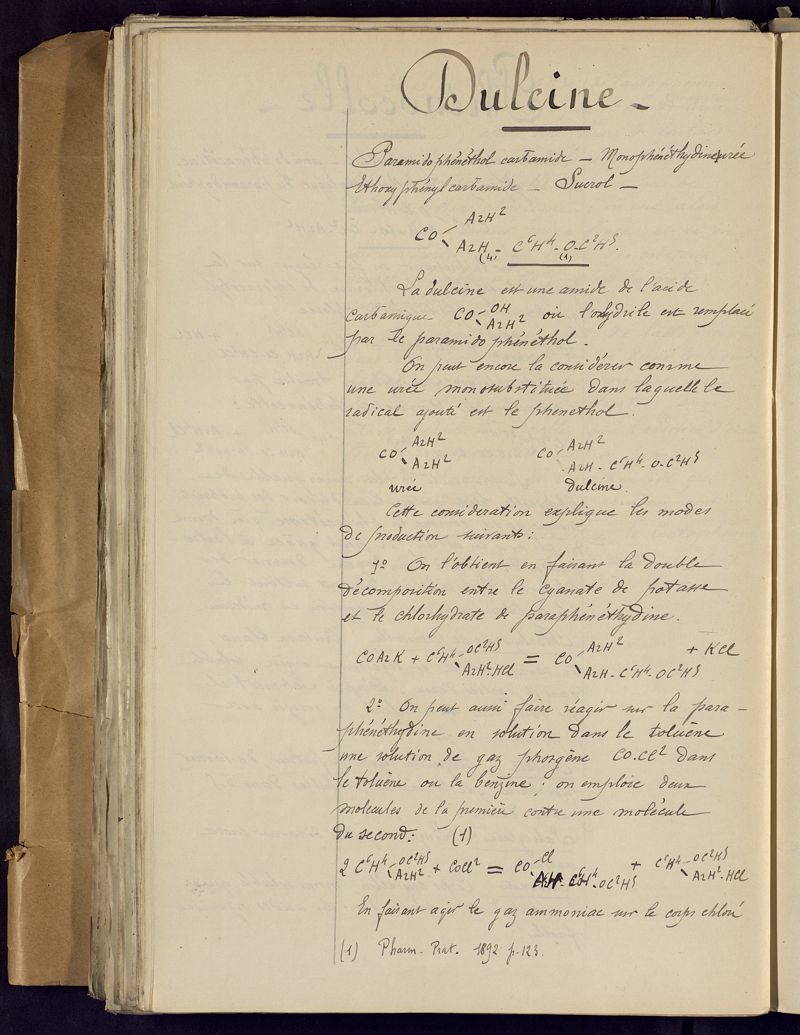 Dulcine_
Paramidophénéthol carbamide — Monophénéthydineurée
Ethoxyphénylcarbamide — Sucrol —
CO AzH² AzH - C⁶H⁴ - O - C²H⁵.
(4) (1)
La dulcine est une amide de l'acide
carbamique CO OH AzH² où l'oxhydrile est remplacé
par le paramidophénéthol.
On peut encore la considérer comme
une urée monosubstituée dans laquelle le
radical ajouté est le phénéthol.
CO AzH² AzH² CO AzH² AzH - C⁶H⁴ - O - C²H⁵
urée dulcine
Cette considération explique les modes
de production suivants:
1º On l'obtient en faisant la double
décomposition entre le cyanate de potasse
et le chlorhydrate de paraphénéthydine.
COAzK + C⁶H⁴ OC²H⁵ AzH².HCl = CO AzH² AzH - C⁶H⁴ - OC²H⁵ + KCl
2º On peut aussi faire réagir sur la para-
phénéthydine en solution dans le toluène
une solution de gaz phosgène CO.Cl² dans
le toluène ou la benzine; on emploie deux
molécules de la première contre une molécule
du second: (1)
2 C⁶H⁴ OC²H⁵ AzH² + COCl² = CO Cl AzH - C⁶H⁴ - OC²H⁵ + C⁶H⁴ OC²H⁵ AzH².HCl
En faisant agir le gaz ammoniac sur le corps chloré
(1) Pharm. Prat. 1892 p. 123.